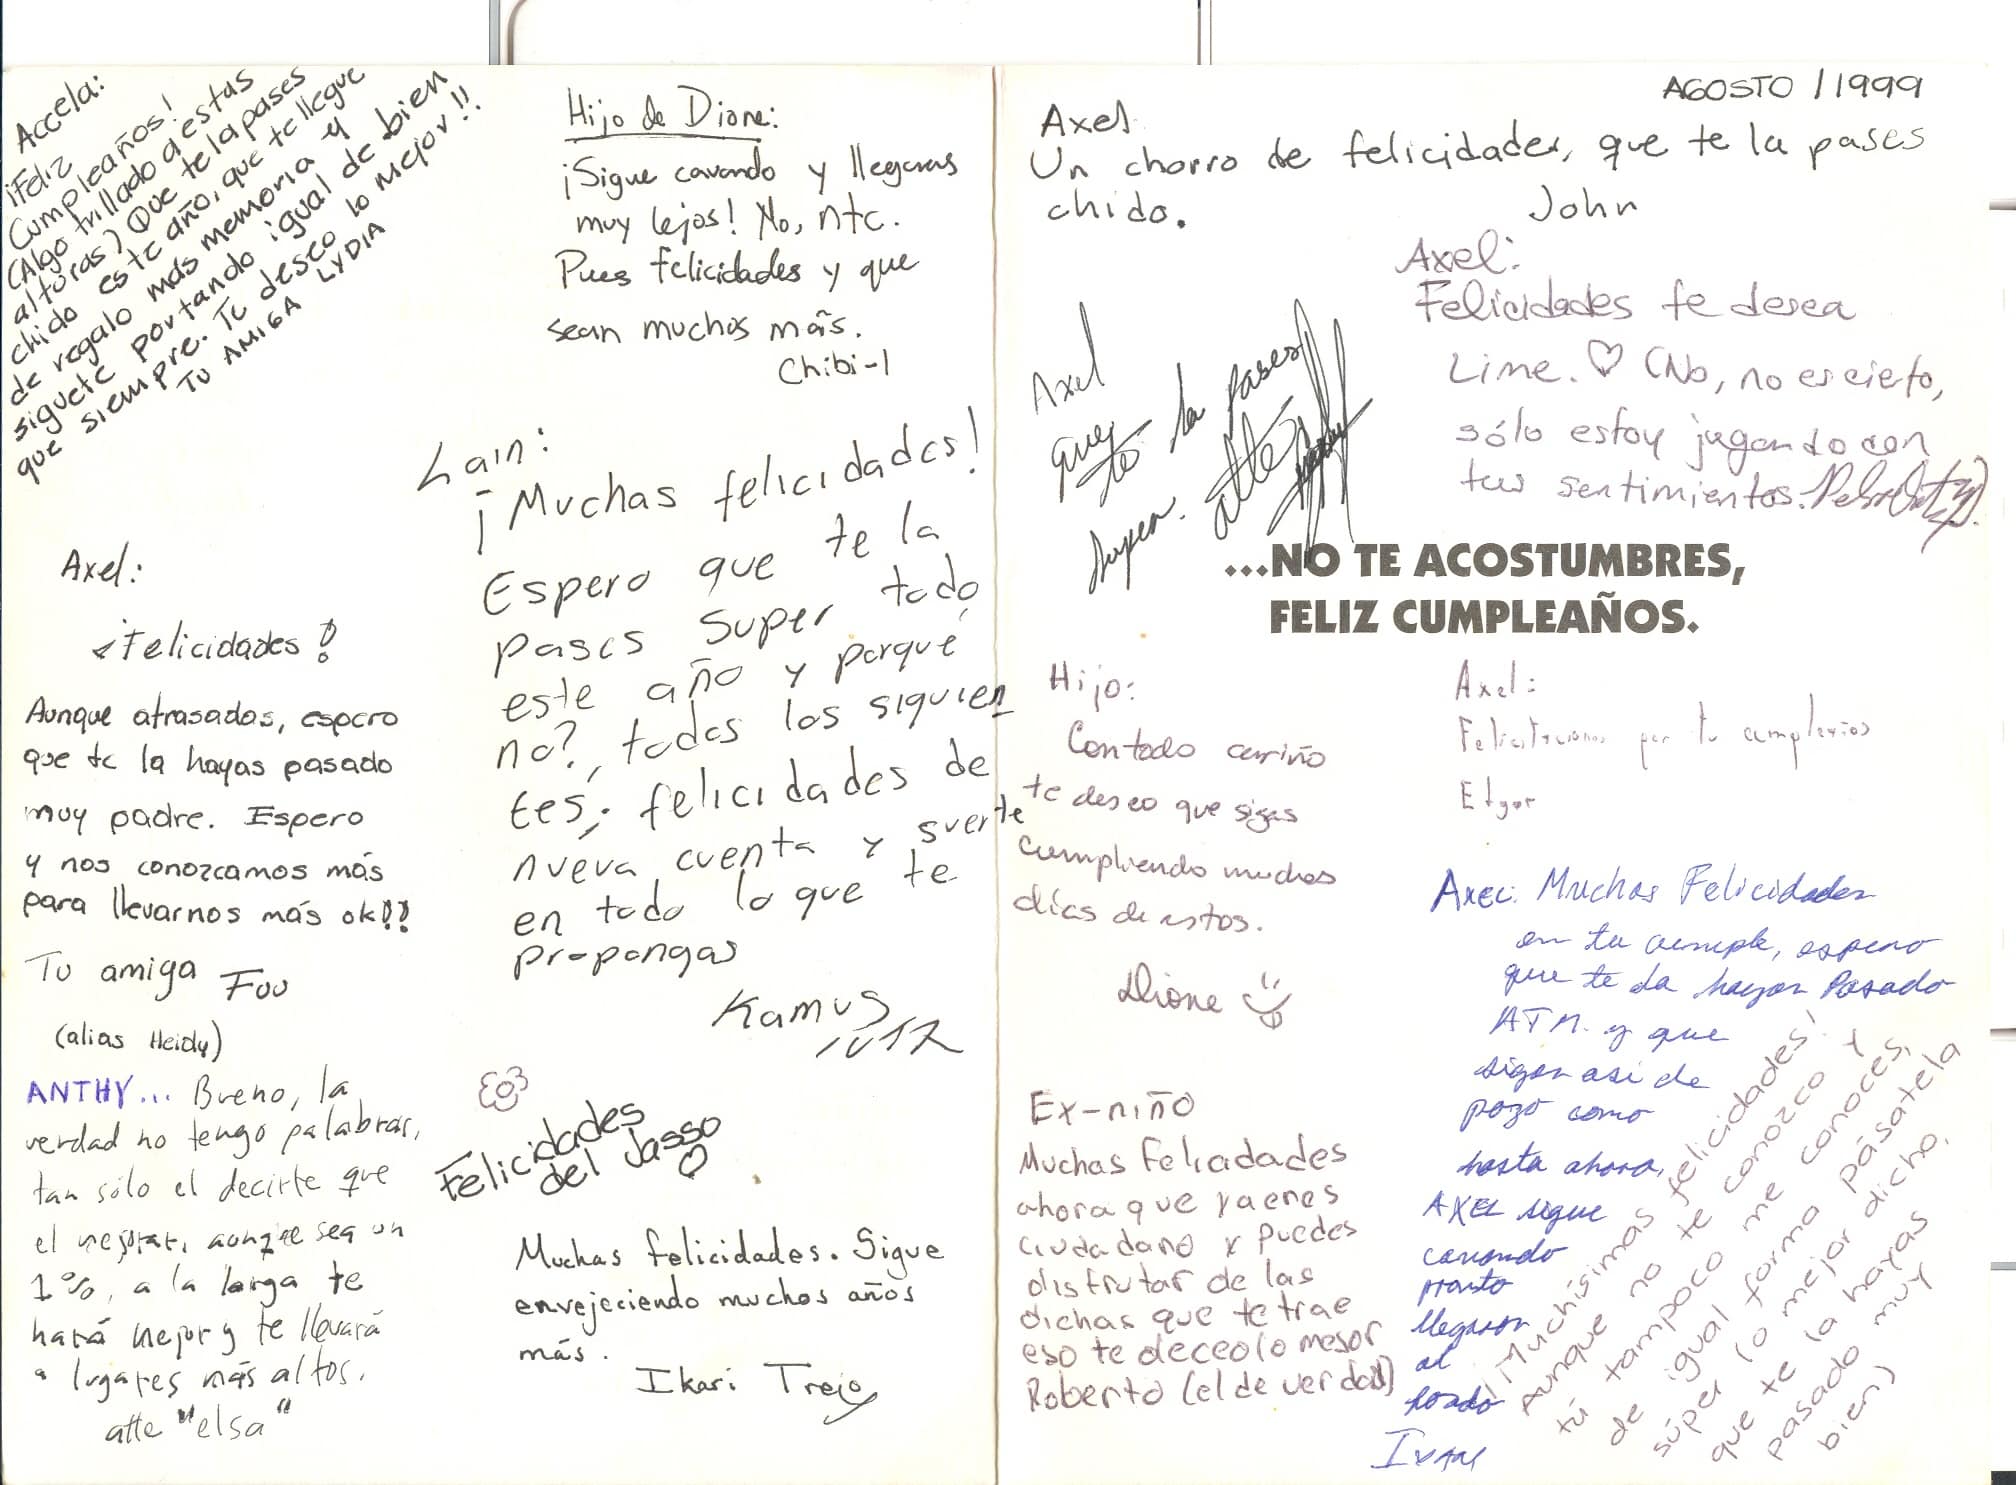 Accela:
¡Feliz
Cumpleaños!
(Algo trillado a estas
alturas) Que te la pases
chido este año, que te llegue
de regalo más memoria y
siguete portando igual de bien
que siempre. Te deseo lo mejor!!
TU AMIGA LYDIA
Hijo de Dione:
¡Sigue cavando y llegaras
muy lejos! No, ntc.
Pues felicidades y que
sean muchos más.
Chibi-1
Lain:
¡Muchas felicidades!
Espero que te la
pases super todo
este año y porqué
no?, todos los siguien
tes; felicidades de
nueva cuenta y suerte
en todo lo que te
propongas
Kamus
Axel:
¡Felicidades!
Aunque atrasadas, espero
que te la hayas pasado
muy padre. Espero
y nos conozcamos más
para llevarnos más ok!!
Tu amiga Foo
(alias Heidy)
ANTHY... Bueno, la
verdad no tengo palabras,
tan sólo el decirte que
el mejorar, aunque sea un
1%, a la larga te
hará mejor y te llevará
a lugares más altos.
atte "elsa"
Felicidades
del Jasso
Muchas felicidades. Sigue
envejeciendo muchos años
más.
Ikari Trejo
AGOSTO/1999
Axel
Un chorro de felicidades, que te la pases
chido.
John
Axel:
Felicidades te desea
Lime. ♡ (No, no es cierto,
sólo estoy jugando con
tus sentimientos.
Axel
que te la pases
super.
atte
...NO TE ACOSTUMBRES,
FELIZ CUMPLEAÑOS.
Hijo:
Con todo cariño
te deseo que sigas
cumpliendo muchos
días de estos.
Dione
Axel:
Felicitaciones por tu cumpleaños
Edgar
Ex-niño
Muchas Felicidades
ahora que ya eres
ciudadano y puedes
disfrutar de las
dichas que te trae
eso te deceo lo mejor
Roberto (el de verdad)
Axel: Muchas Felicidades
en tu cumple, espero
que te la hayas Pasado
ATM. y que
sigas asi de
pozo como
hasta ahora,
AXEL sigue
cavando
pronto
llegaras
al
fondo
IVAN
¡Muchísimas felicidades!
Aunque no te conozco y
tú tampoco me conoces,
de igual forma pásatela
súper (o mejor dicho,
que te la hayas
pasado muy
bien)